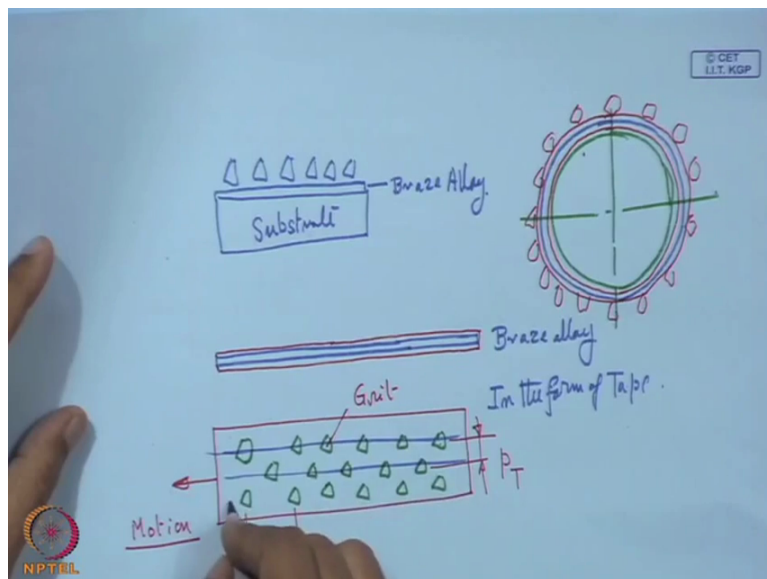 © CET
I.I.T. KGP
Braze Alloy.
Substrate
Braze alloy
In the form of Tape.
Grit
PT
Motion
NPTEL